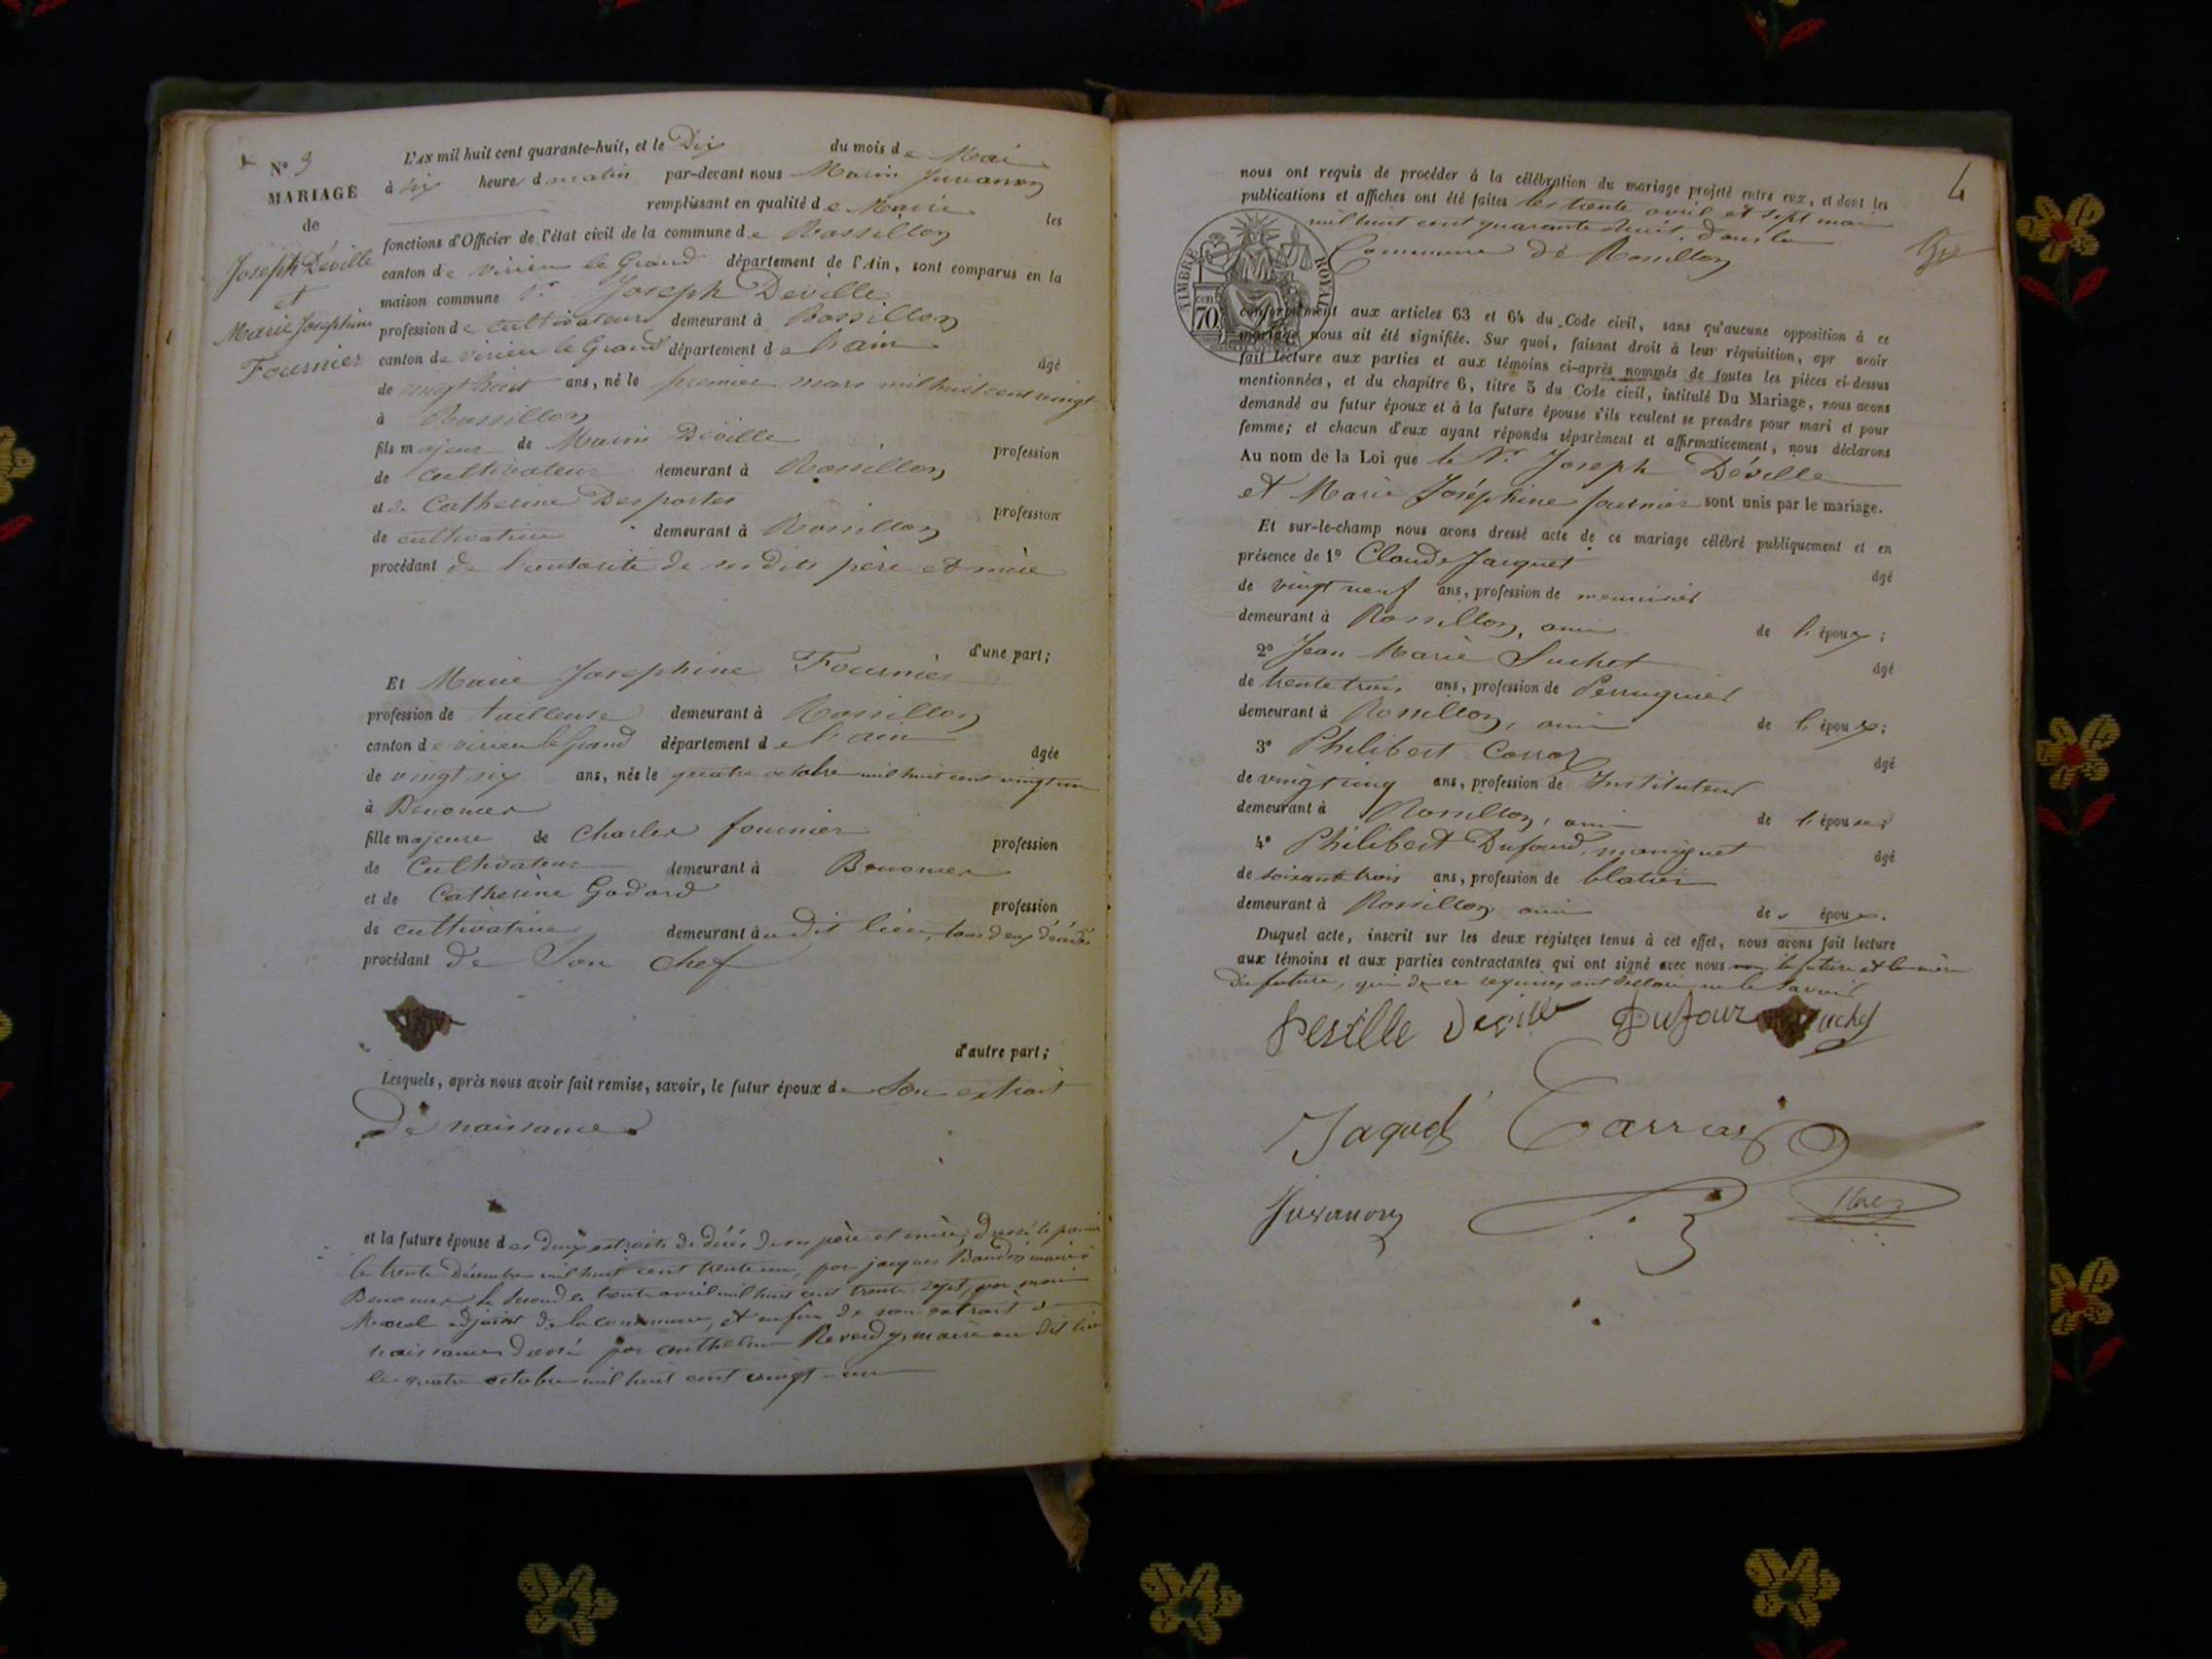 N° 3
MARIAGE
de
Joseph Déville
et
Marie Josephine
Fournier
L'AN mil huit cent quarante-huit, et le Dix du mois de Mai
à six heure d matin par-devant nous Marin Juvanon
remplissant en qualité de Maire les
fonctions d'Officier de l'état civil de la commune de Rossillon
canton de virieu le Grand département de l'Ain, sont comparus en la
maison commune Sr Joseph Déville
profession de cultivateur demeurant à Rossillon
canton de virieu le Grand département de l'ain âgé
de vingt huit ans, né le premier mars mil huit cent vingt
à Rossillon
fils majeur de Marin Déville profession
de cultivateur demeurant à Rossillon
et de Catherine Desportes profession
de cultivatrice demeurant à Rossillon
procédant de l'autorité de ses dits père et mère
d'une part;
Et Marie Josephine Fournier
profession de tailleuse demeurant à Rossillon
canton de virieu le Grand département de l'ain âgée
de vingt six ans, née le quatre octobre mil huit cent vingt un
à Benonces
fille majeure de Charles fournier profession
de Cultivateur demeurant à Benonces
et de Catherine Godard profession
de cultivatrice demeurant au dit lieu, tous deux décédés
procédant de Son chef
d'autre part;
Lesquels, après nous avoir fait remise, savoir, le futur époux de Son extrait
De naissance
et la future épouse des deux extraits de décès de ses père et mère, dressé le premier
le trente Décembre mil huit cent trente un, par jacques Baudin maire à
Benonces le second le trente avril mil huit cent trente sept, par
adjoint de la commune, et enfin de son extrait de
naissance dressé par anthelme Reverdy, maire au dit lieu
le quatre octobre mil huit cent vingt un
4
nous ont requis de procéder à la célébration du mariage projeté entre eux, et dont les
publications et affiches ont été faites les trente avril et sept mai
mil huit cent quarante huit, dans la
Commune de Rossillon
TIMBRE ROYAL
70 cen
conformément aux articles 63 et 64 du Code civil, sans qu'aucune opposition à ce
mariage nous ait été signifiée. Sur quoi, faisant droit à leur réquisition, apr avoir
fait lecture aux parties et aux témoins ci-après nommés de toutes les pièces ci-dessus
mentionnées, et du chapitre 6, titre 5 du Code civil, intitulé Du Mariage, nous avons
demandé au futur époux et à la future épouse s'ils veulent se prendre pour mari et pour
femme; et chacun d'eux ayant répondu séparément et affirmativement, nous déclarons
Au nom de la Loi que le Sr Joseph Déville
et Marie Joséphine fournier sont unis par le mariage.
Et sur-le-champ nous avons dressé acte de ce mariage célébré publiquement et en
présence de 1° Claude Jacquet âgé
de vingt neuf ans, profession de menuisier
demeurant à Rossillon, ami de l'époux;
2° Jean Marie Suchet âgé
de trente trois ans, profession de Perruquier
demeurant à Rossillon, ami de l'époux;
3° Philibert âgé
de vingt cinq ans, profession de Instituteur
demeurant à Rossillon, ami de l'épouse;
4° Philibert Dufour âgé
de soixante trois ans, profession de blatier
demeurant à Rossillon ami des époux.
Duquel acte, inscrit sur les deux registres tenus à cet effet, nous avons fait lecture
aux témoins et aux parties contractantes qui ont signé avec nous non la future et la mère
du futur, qui de ce requises ont déclaré ne le savoir
Deville Deville Dufour Suchet
Jaquet
Juvanon